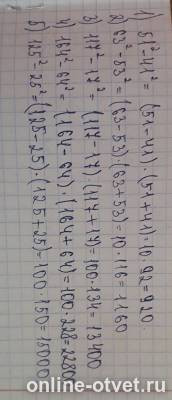 1) 51²-41²= (51-41)·(51+41)=10·92=920
2) 63²-53²=(63-53)·(63+53)=10·116=1160
3) 117²-17²=(117-17)·(117+17)=100·134=13400
4) 164²-64²=(164-64)·(164+64)=100·228=2280
5) 125²-25²=(125-25)·(125+25)=100·150=15000
online-otvet.ru